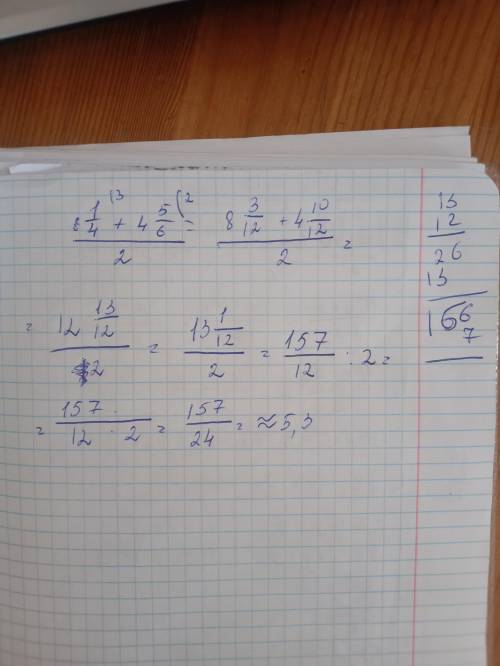 (8 1/4 ^(3 + 4 5/6 ^(2)/2 = (8 3/12 + 4 10/12)/2 =
= (12 13/12)/2 = (13 1/12)/2 = 157/12 : 2 =
= 157/(12 · 2) = 157/24 = ≈ 5,3
13
12
26
13
166
7